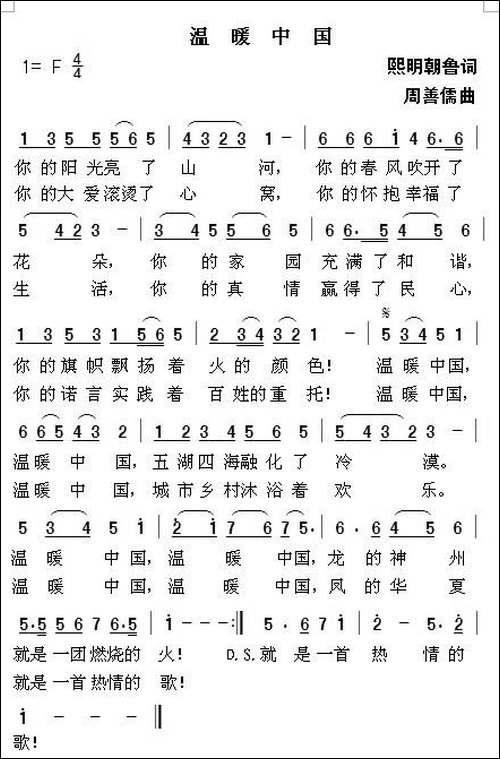 温 暖 中 国
1= F 4/4
熙明朝鲁词
周善儒曲
1 3 5 5 5 6 5 | 4 3 2 3 1 - | 6 6 6 i 4 6. 6 |
你 的 阳 光 亮 了 山 河, 你 的 春 风 吹 开 了
你 的 大 爱 滚 烫 了 心 窝, 你 的 怀 抱 幸 福 了
5 4 2 3 - | 3 4 5 5 6 5 | 6 6. 5 4 5 6 |
花 朵, 你 的 家 园 充 满 了 和 谐,
生 活, 你 的 真 情 赢 得 了 民 心,
1 3 5 3 1 5 6 | 2 3 4 3 2 1 - | 5 3 4 5 1 |
你 的 旗 帜 飘 扬 着 火 的 颜 色! 温 暖 中 国,
你 的 诺 言 实 践 着 百 姓 的 重 托! 温 暖 中 国,
6 6 5 4 3 2 | 1 2 3 4 5 6 6 | 5 4 3 2 - |
温 暖 中 国, 五 湖 四 海 融 化 了 冷 漠。
温 暖 中 国, 城 市 乡 村 沐 浴 着 欢 乐。
5 3 4 5 i | 2 i 7 6 7 5. | 6 6 6 4 5 6 |
温 暖 中 国, 温 暖 中 国, 龙 的 神 州
温 暖 中 国, 温 暖 中 国, 凤 的 华 夏
5.5 5 6 7 6.5 | i - - - :| 5. 6 7 i | 2 - 5. 5 |
就 是 一 团 燃 烧 的 火! D.S. 就 是 一 首 热 情 的
就 是 一 首 热 情 的 歌!
i - - - ‖
歌!